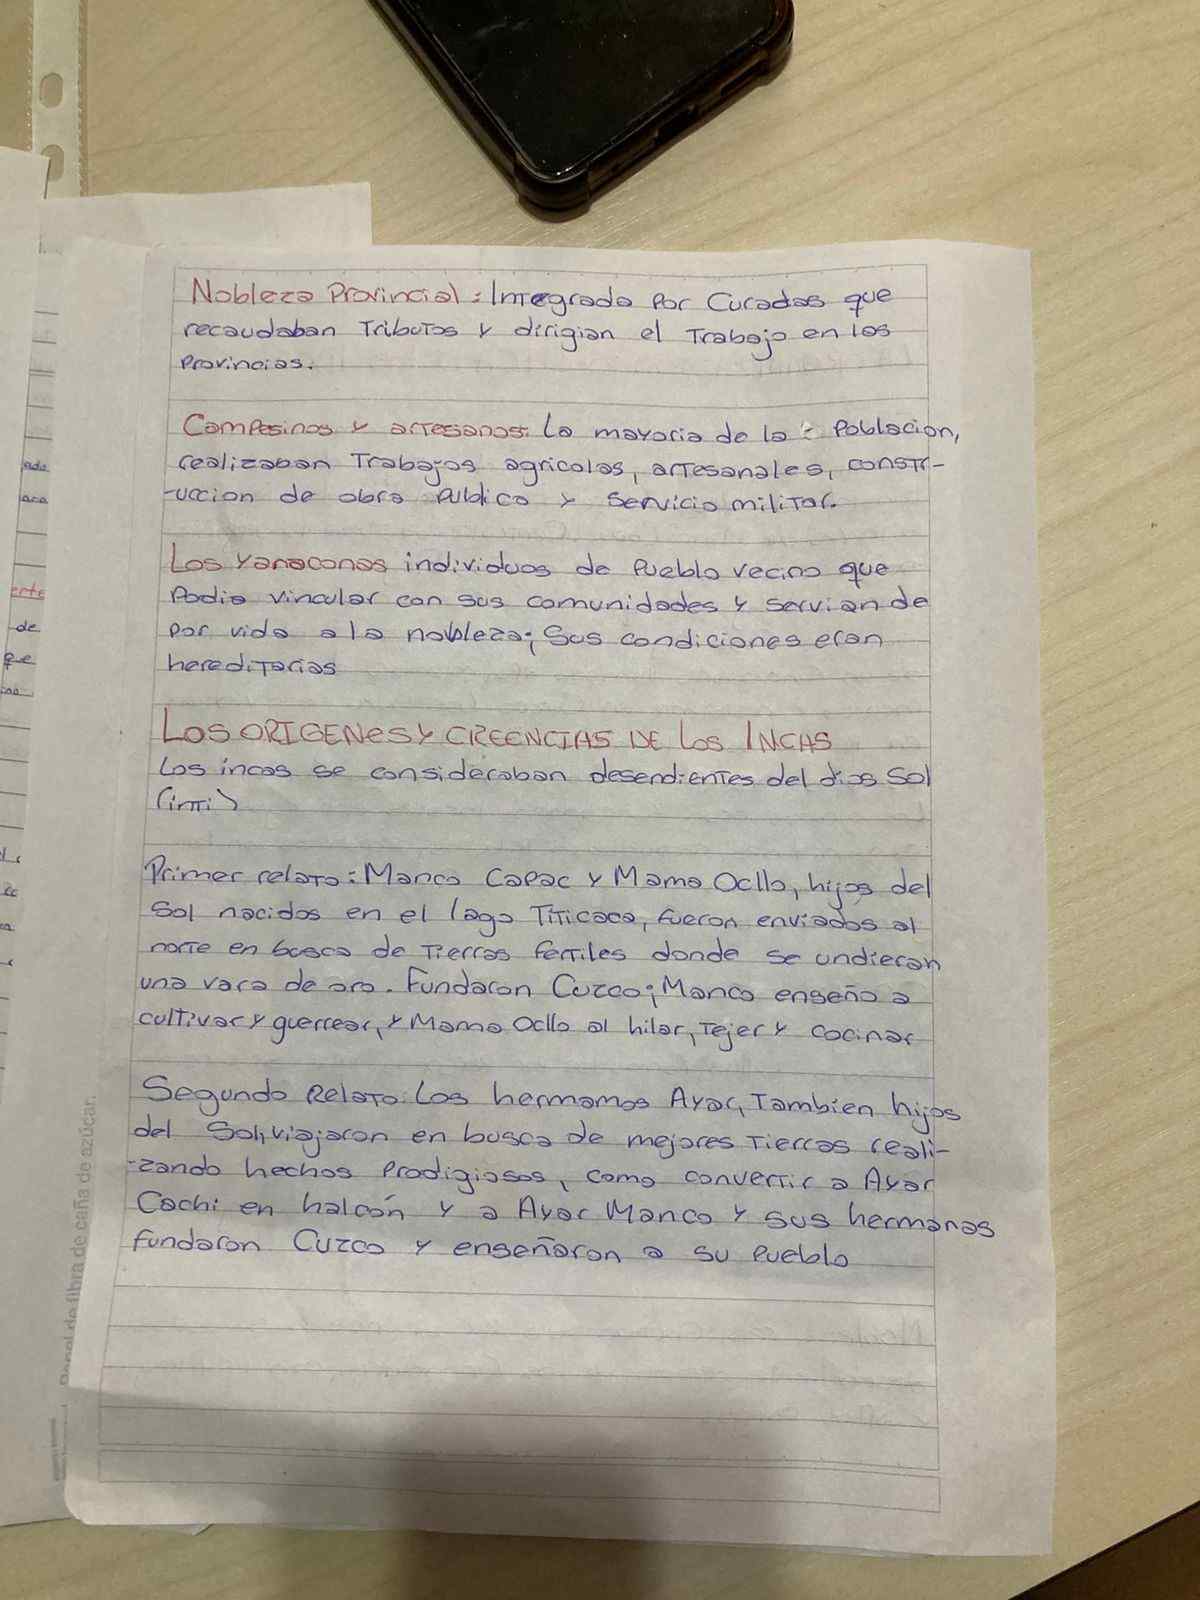 Nobleza Provincial: Integrada por Curadas que
recaudaban Tributos y dirigian el Trabajo en las
Provincias.
Campesinos y artesanos: La mayoria de la Poblacion,
realizaban Trabajos agricolas, artesanales, constr-
-uccion de obra publica y servicio militar.
Los Yanaconas individuos de Pueblo vecino que
Podia vincular con sus comunidades y servian de
por vida a la nobleza; Sus condiciones eran
hereditarias
LOS ORIGENES Y CREENCIAS DE LOS INCAS
Los incas se consideraban desendientes del dios Sol
(inti)
Primer relato: Manco Capac y Mama Ocllo, hijos del
Sol nacidos en el lago Titicaca, fueron enviados al
norte en busca de Tierras fertiles donde se undieran
una vara de oro. Fundaron Cuzco; Manco enseño a
cultivar y guerrear, y Mama Ocllo al hilar, Tejer y cocinar
Segundo Relato: Los hermamos Ayar, Tambien hijos
del Sol, viajaron en busca de mejores Tierras reali-
-zando hechos Prodigiosos, como convertir a Ayar
Cachi en halcón y a Ayar Manco y sus hermanas
fundaron Cuzco y enseñaron a su Pueblo
ada
aca
erte
de
que
Papel de fibra de caña de azúcar.